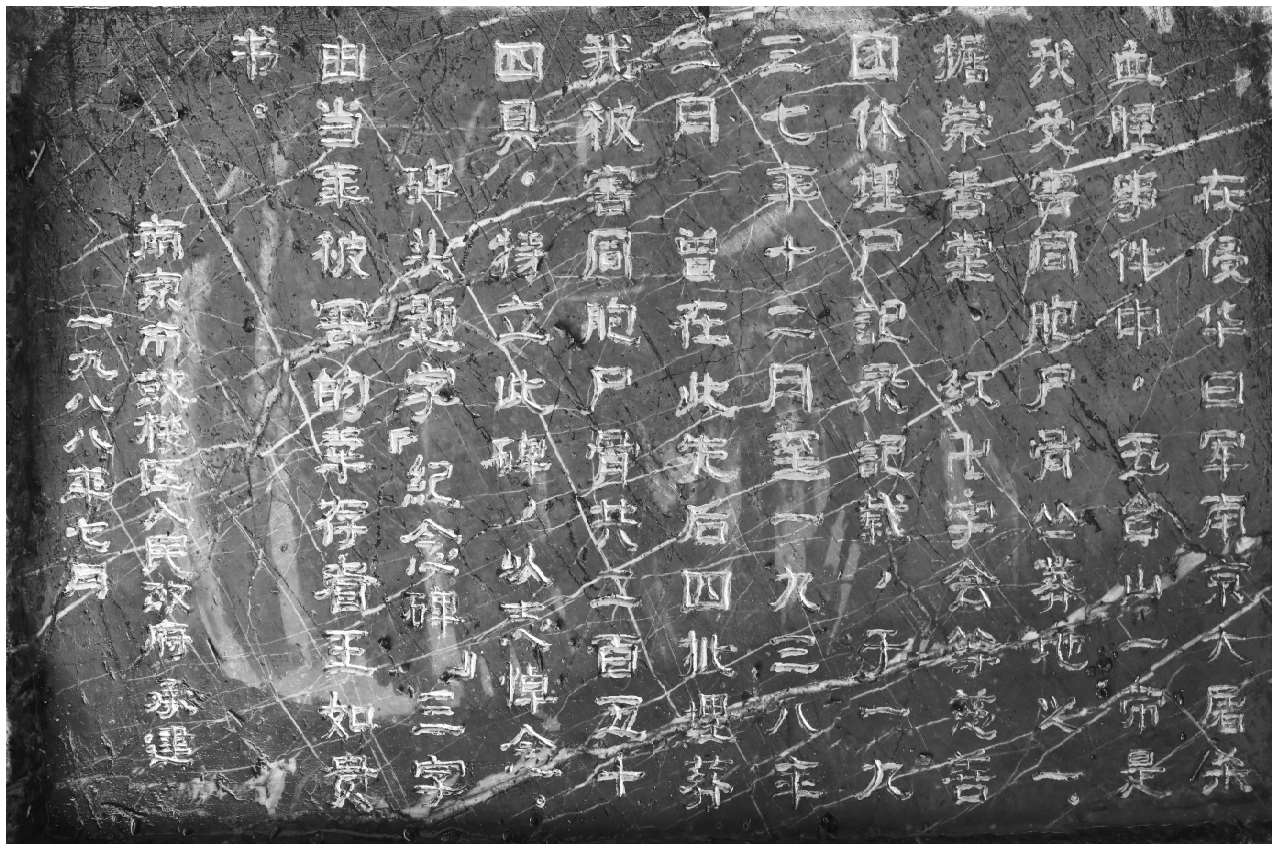 在侵华日军南京大屠杀
血腥事件中,五台山一带是
我受害同胞尸骨丛葬地之一。
据崇善堂、红卍字会等慈善
团体埋尸記录記载,于一九
三七年十二月至一九三八年
二月曾在此先后四批埋葬
我被害同胞尸骨共二百五十
四具。特立此碑,以志悼念。
碑头题字「紀念碑」三字
由当年被害的幸存者王如贵
书。
南京市鼓楼区人民政府承建
一九八八年七月